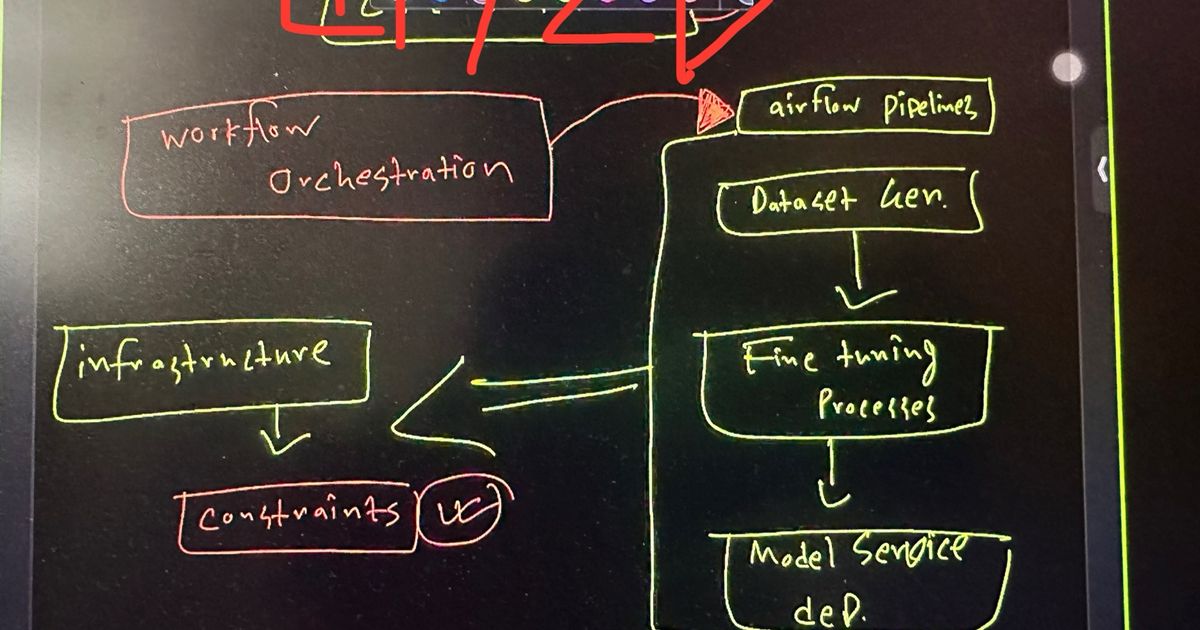 workflow
orchestration
airflow pipelines
Dataset Gen.
Fine tuning
Processes
Model Service
dep.
infrastructure
constraints